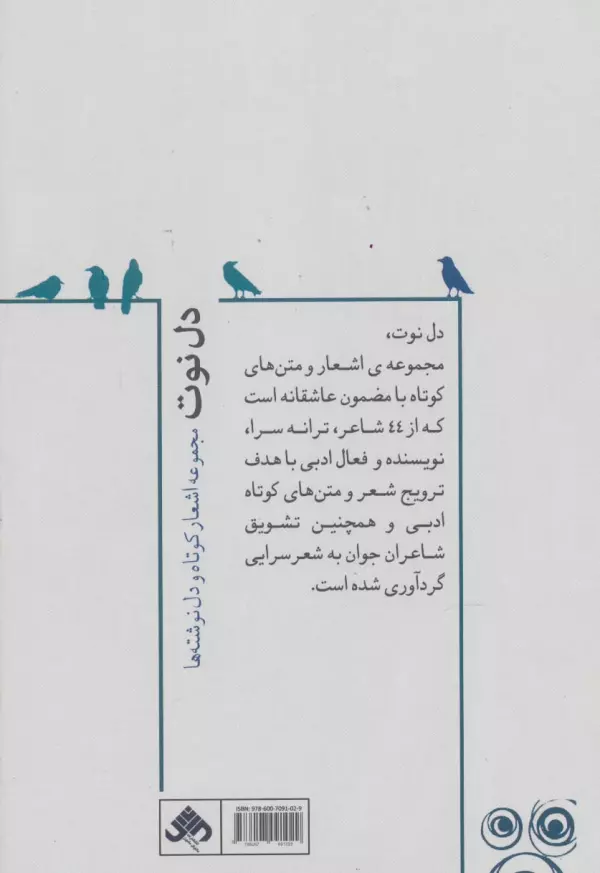 دل نوت،
مجموعه ی اشعار و متن‌های
کوتاه با مضمون عاشقانه است
که از ٤٤ شاعر، ترانه سرا،
نویسنده و فعال ادبی با هدف
ترویج شعر و متن‌های کوتاه
ادبی و همچنین تشویق
شاعران جوان به شعرسرایی
گردآوری شده است.
دل نوت
مجموعه اشعار کوتاه و دل نوشته‌ها
ISBN: 978-600-7091-02-9